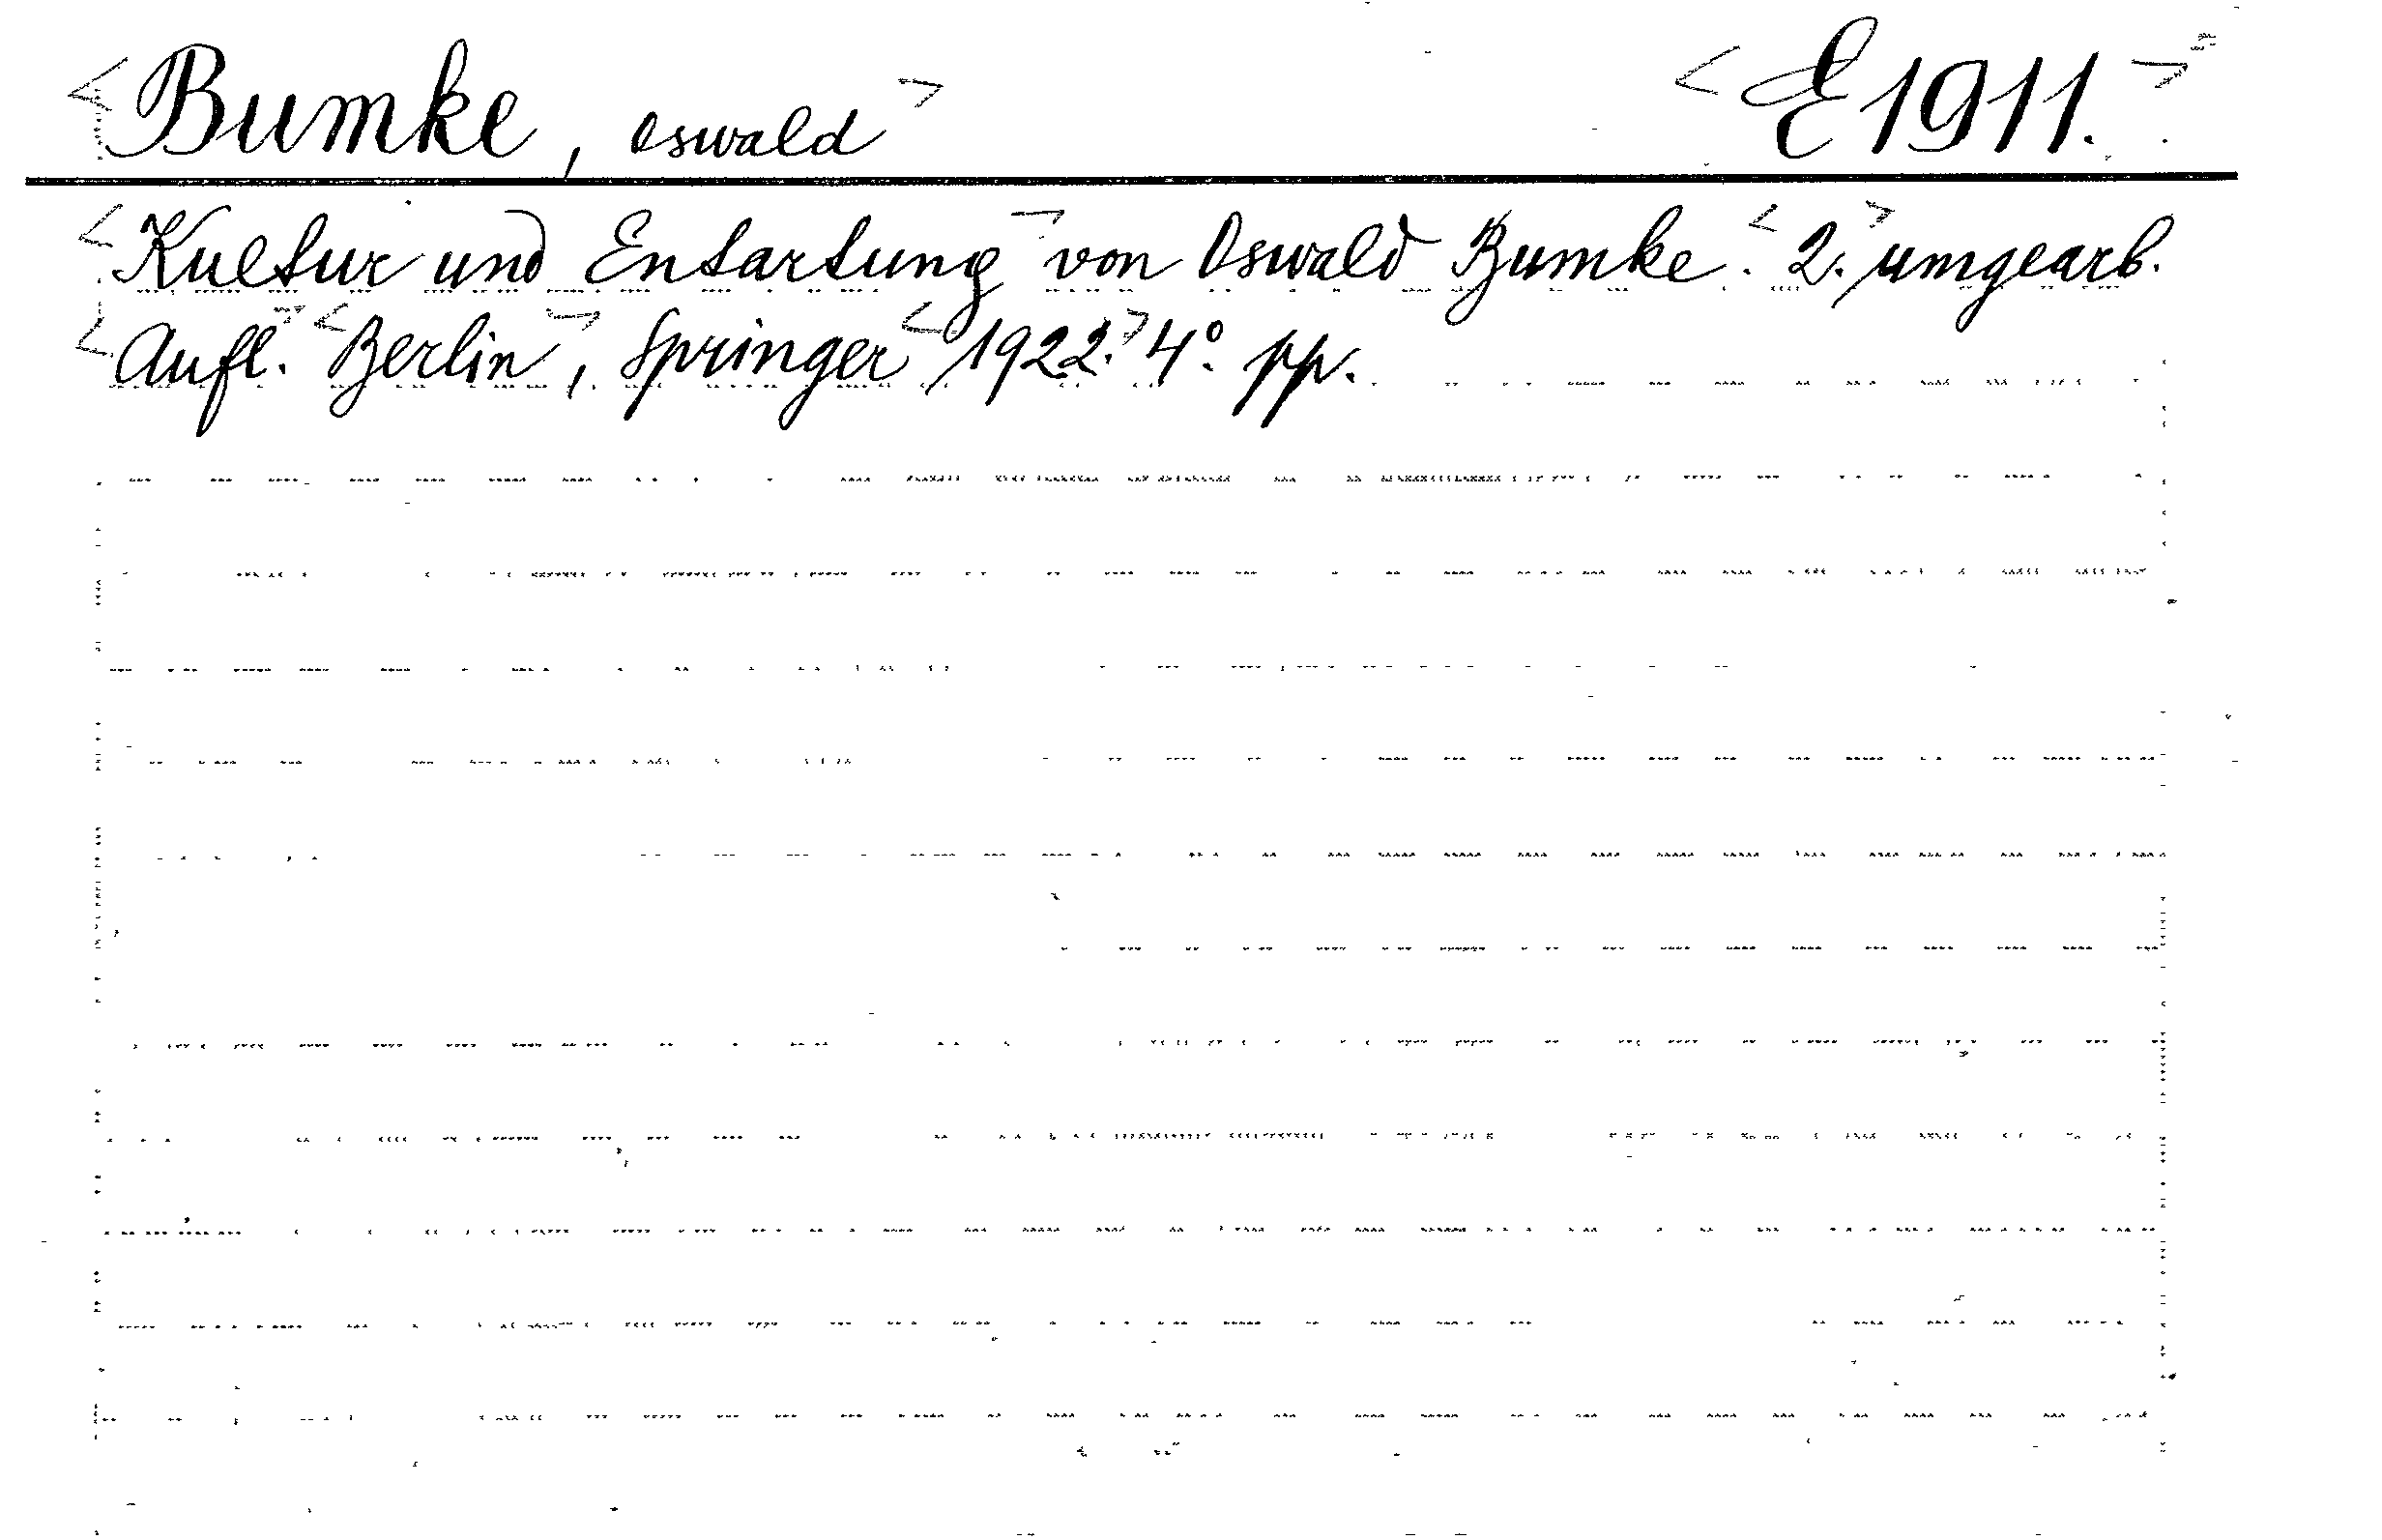 <Bumke, Oswald> <E1911.>
<Kultur und Entartung> von Oswald Bumke. <2.> umgearb.
<Aufl.> <Berlin>, Springer <1922.> 4°. pp.